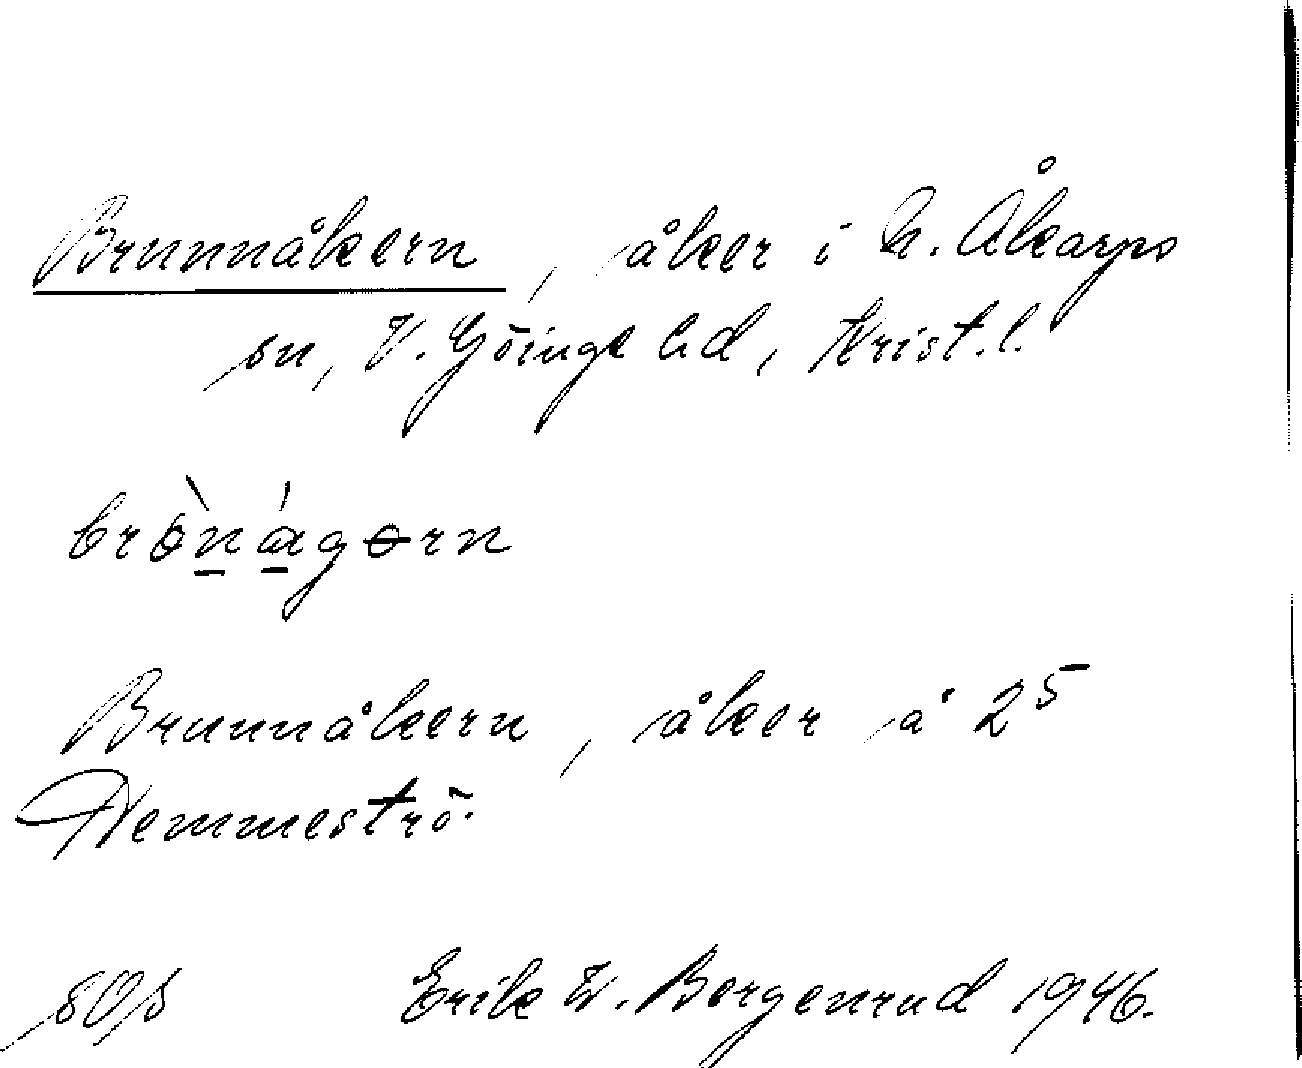 Brunnåkern, åker i N. Åkarps
sn, V. Göinge hd, Krist.l.
brònágørn
Brunnåkern, åker å 2⁵
Hemmeströ.
Erik W. Bergenrud 1946.